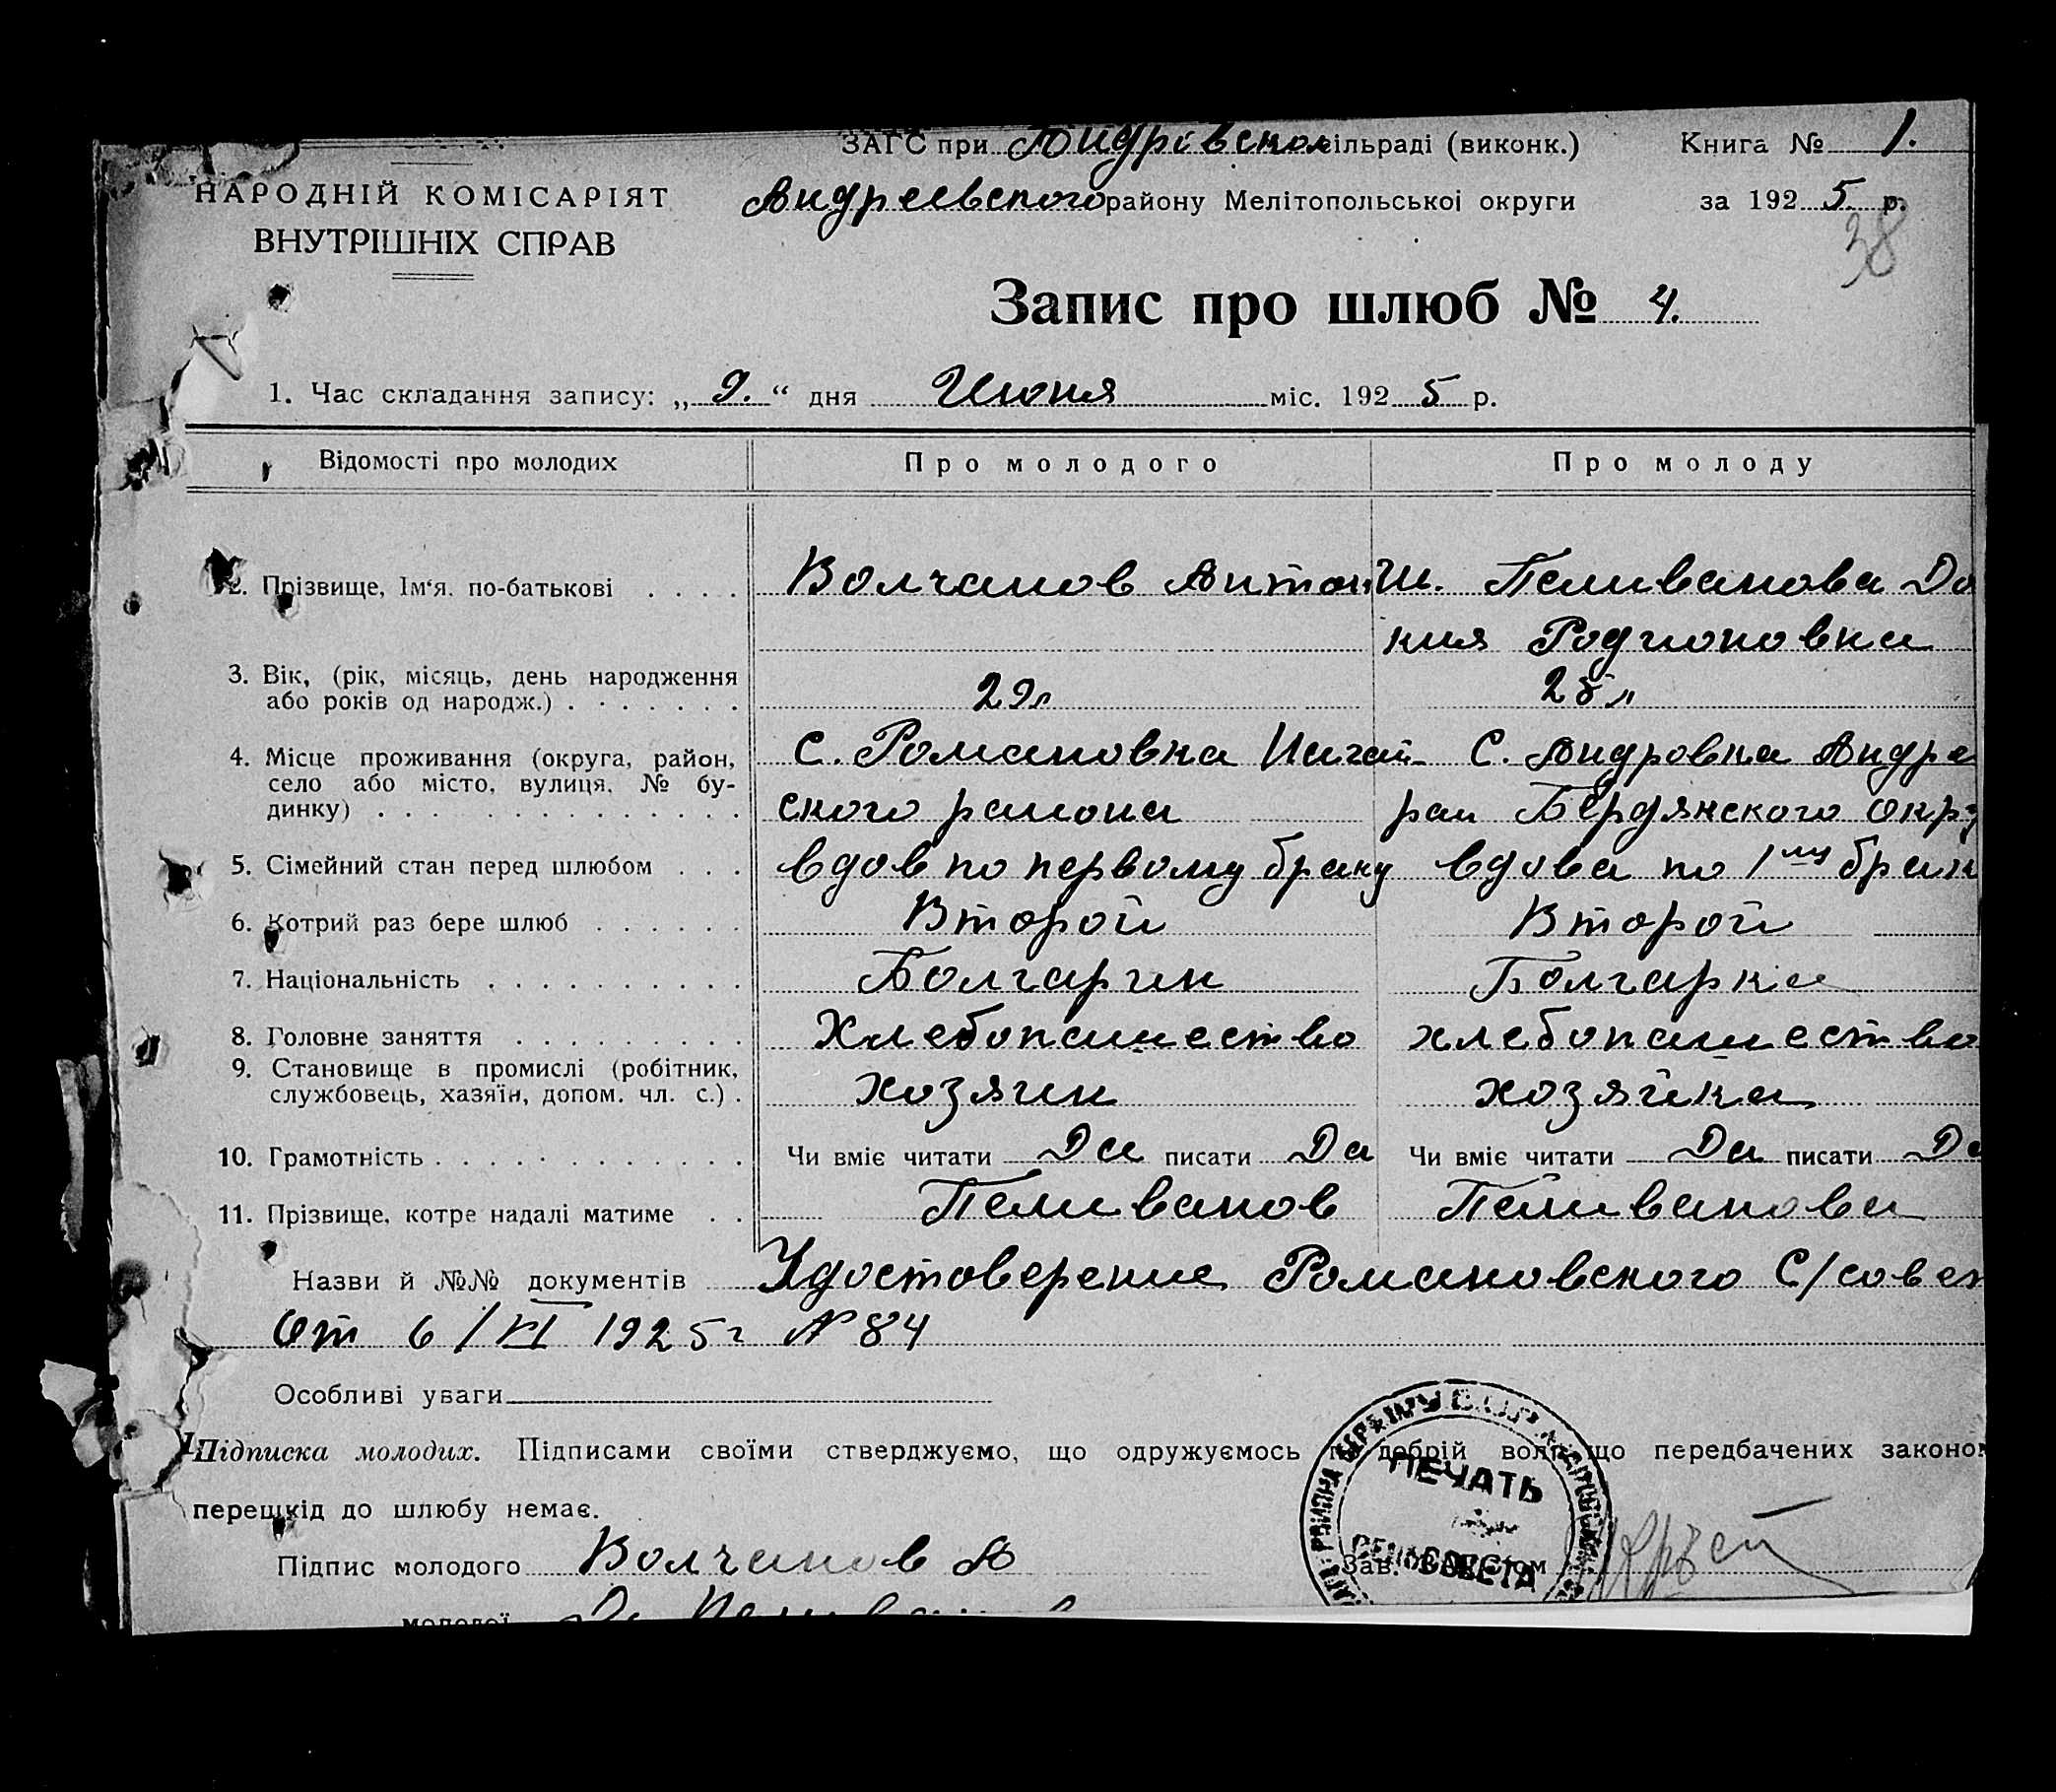 ЗАГС при Андрівской сільраді (виконк.) Книга № 1.
НАРОДНІЙ КОМІСАРІЯТ
Андреевского району Мелітопольської округи за 192 5 р.
ВНУТРІШНІХ СПРАВ
38
Запис про шлюб № 4.
1. Час складання запису: „ 9. “ дня Июня міс. 192 5 р.
Відомості про молодих Про молодого Про молоду
2. Прізвище, Ім‘я. по-батькові Волчанов Антон И. Пеливанова До
кия Родионовна
3. Вік, (рік, місяць, день народження
або років од народж.) 29л 28л
4. Місце проживання (округа, район,
село або місто, вулиця, № бу-
динку)
С. Романовка Нагай- С. Андровка Андре
ского района рай Бердянского окру
5. Сімейний стан перед шлюбом вдов по первому браку вдова по 1му брак
6. Котрий раз бере шлюб Второй Второй
7. Національність Болгарин Болгарка
8. Головне заняття Хлебопашество хлебопашество
9. Становище в промислі (робітник,
службовець, хазяїн, допом. чл. с.) хозяин хозяйка
10. Грамотність Чи вміє читати Да писати Да Чи вміє читати Да писати Да
11. Прізвище, котре надалі матиме Пеливанов Пеливанова
Назви й №№ документів Удостоверение Романовского С/совет
От 6/VI 1925г № 84
Особливі уваги
Підписка молодих. Підписами своїми стверджуємо, що одружуємось по добрій волі, що передбачених законом
перешкід до шлюбу немає.
ПЕЧАТЬ
СОВЕТА
Підпис молодого Волчанов А Зав.
молодої